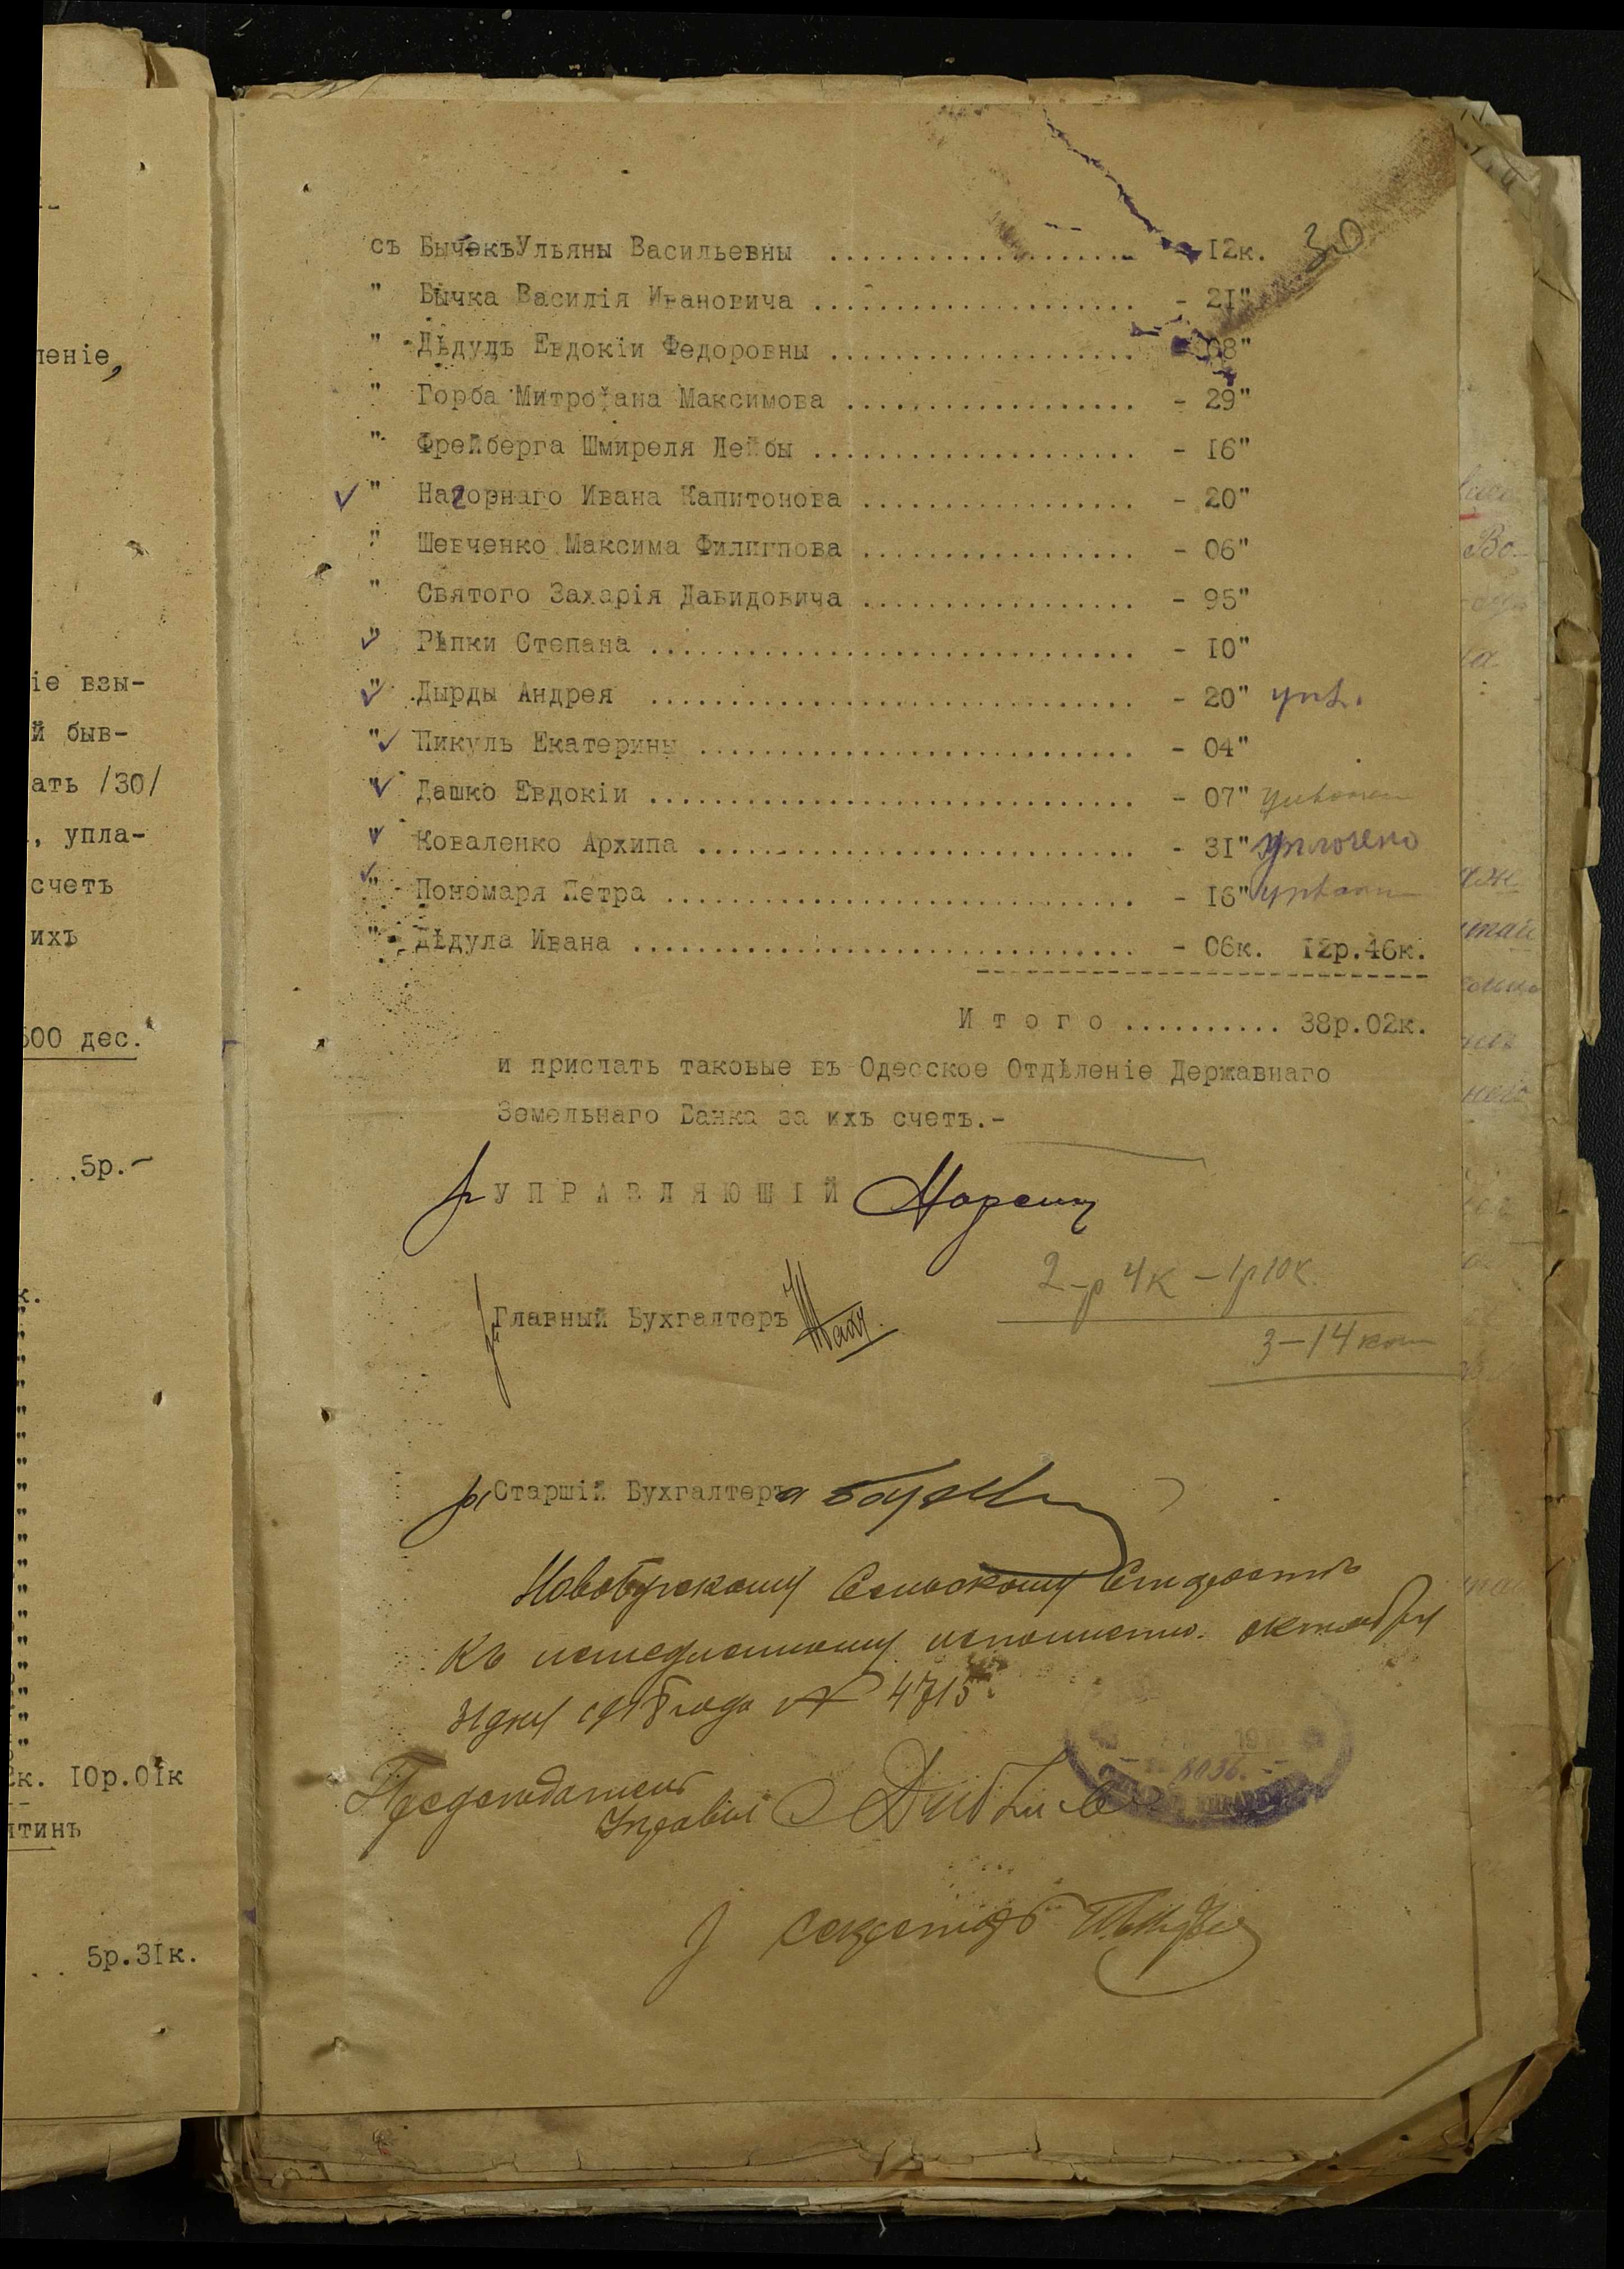 леніе,
іе взы-
й быв-
ать /30/
, упла-
счетъ
ихъ
500 дес.
5р.-
к.
к. I0р.0Iк
тинъ
5р.3Iк.
30
съ БычекъУльяны Васильевны .................... - I2к.
" Бычка Василія Ивановича .................... - 2I"
" Дѣдудъ Евдокіи Федоровны .................... 68"
" Горба Митрофана Максимова .................. - 29"
" Фрейберга Шмиреля Лейбы .................... - I6"
✓ " Нагорнаго Ивана Капитонова ................. - 20"
" Шевченко Максима Филиппова ................. - 06"
" Святого Захарія Давидовича ................. - 95"
✓ " Рѣпки Степана .............................. - I0"
✓ " Дырды Андрея .............................. - 20" упл.
" ✓ Пикуль Екатерины ........................... - 04"
✓ " Дашко Евдокіи .............................. - 07"
✓ " Коваленко Архипа ........................... - 3I" Уплочено
✓ " Пономаря Петра ............................. - I6"
" Дѣдула Ивана ............................... - 06к. I2р.46к.
И т о г о .......... 38р.02к.
и прислать таковые въ Одесское Отдѣленіе Державнаго
Земельнаго Банка за ихъ счетъ.-
У П Р А В Л Я Ю Щ І Й
2-р 4к - 1р10к.
Главный Бухгалтеръ
3-14 коп
Старшій Бухгалтеръ
Новобугскому Сельскому Старостѣ
Къ немедленному исполненію. октября
31 дня 1918 года № 4715.
19
8036.
Председатель
Управы
Секретарь